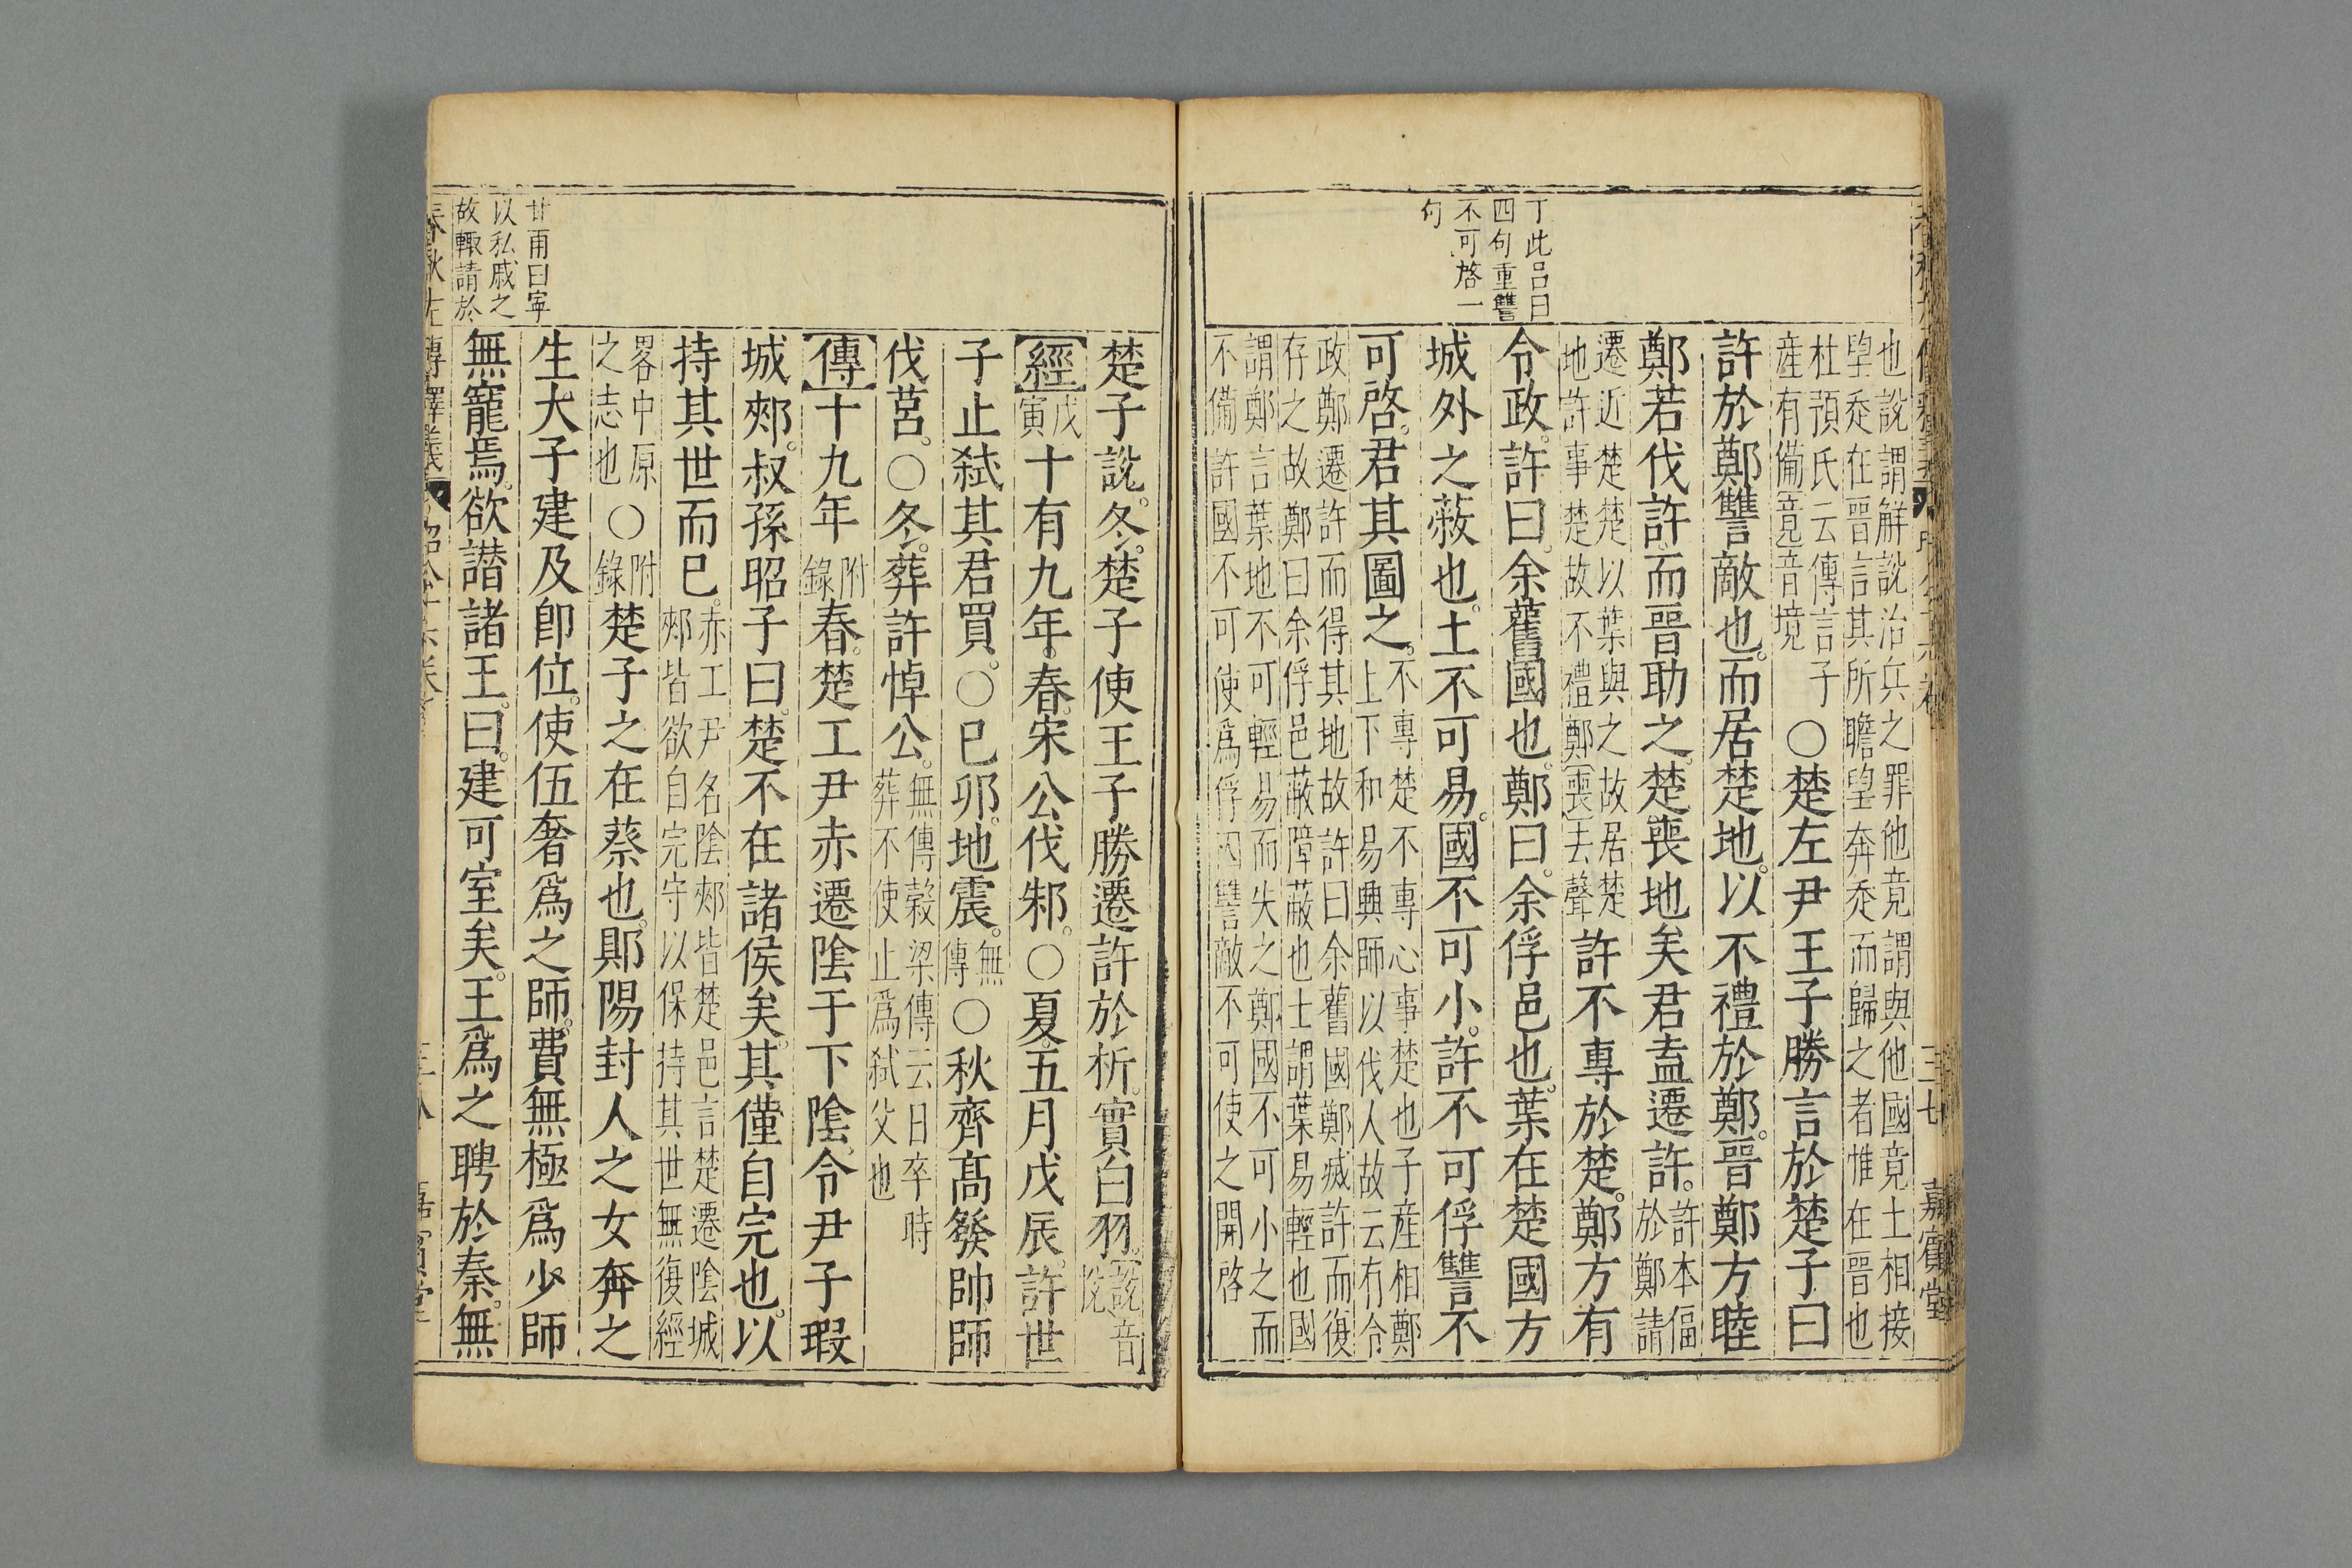 丁此呂曰
四句重讐
不可啓一
句
也說謂解說治兵之罪他竟謂與他國竟土相接
望奔在晉言其所瞻望奔奔而歸之者惟在晉也
杜預氏云傳言子
産有備竟音境
○楚左尹王子勝言於楚子曰
許於鄭讐敵也而居楚地以不禮於鄭晉鄭方睦
鄭若伐許而晉助之楚喪地矣君盍遷許
許本偪
於鄭請
遷近楚楚以葉與之故居楚
地許事楚故不禮鄭喪去聲
許不專於楚鄭方有
令政許曰余舊國也鄭曰余俘邑也葉在楚國方
城外之蔽也土不可易國不可小許不可俘讐不
可啓君其圖之
不專楚不專心事楚也子産相鄭
上下和易興師以伐人故云有令
政鄭遷許而得其地故許曰余舊國鄭烕許而復
存之故鄭曰余俘邑蔽障蔽也土謂葉易輕也國
謂鄭言葉地不可輕易而失之鄭國不可小之而
不備許國不可使爲俘囚讐敵不可使之開啓
三七
嘉賓堂
楚子說冬楚子使王子勝遷許於析實白羽
說音
悅
經
戊
寅
十有九年春宋公伐邾○夏五月戊辰許世
子止弑其君買○已卯地震
無
傳
○秋齊髙發帥師
伐莒○冬葬許悼公
無傳穀梁傳云日卒時
葬不使止爲弑父也
傳
十九年
附
錄
春楚工尹赤遷隂于下隂令尹子瑕
城郟叔孫昭子曰楚不在諸侯矣其僅自完也以
持其世而已
赤工尹名隂郟皆楚邑言楚遷隂城
郟皆欲自完守以保持其世無復經
畧中原
之志也
○
附
錄
楚子之在蔡也郹陽封人之女奔之
生大子建及卽位使伍奢爲之師費無極爲少師
無寵焉欲譖諸王曰建可室矣王爲之聘於秦無
甘雨曰寧
以私戚之
故輙請於
春秋左傳釋義